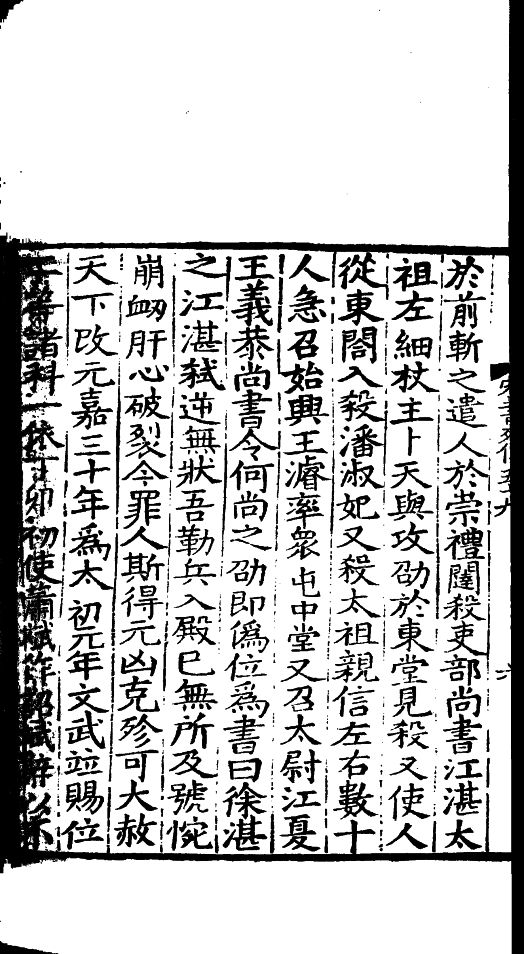 於前斬之遣人於崇禮闥殺吏部尚書江湛太
祖左細杖主卜天與攻劭於東堂見殺又使人
從東閤入殺潘淑妃又殺太祖親信左右數十
人急召始興王濬率衆屯中堂又召太尉江夏
王義恭尚書令何尚之劭即僞位爲書曰徐湛
之江湛弒逆無狀吾勒兵入殿已無所及號惋
崩衂肝心破裂今罪人斯得元凶克殄可大赦
天下改元嘉三十年爲太初元年文武並賜位
二等諸科一依丁卯初使蕭斌作詔斌辭以不